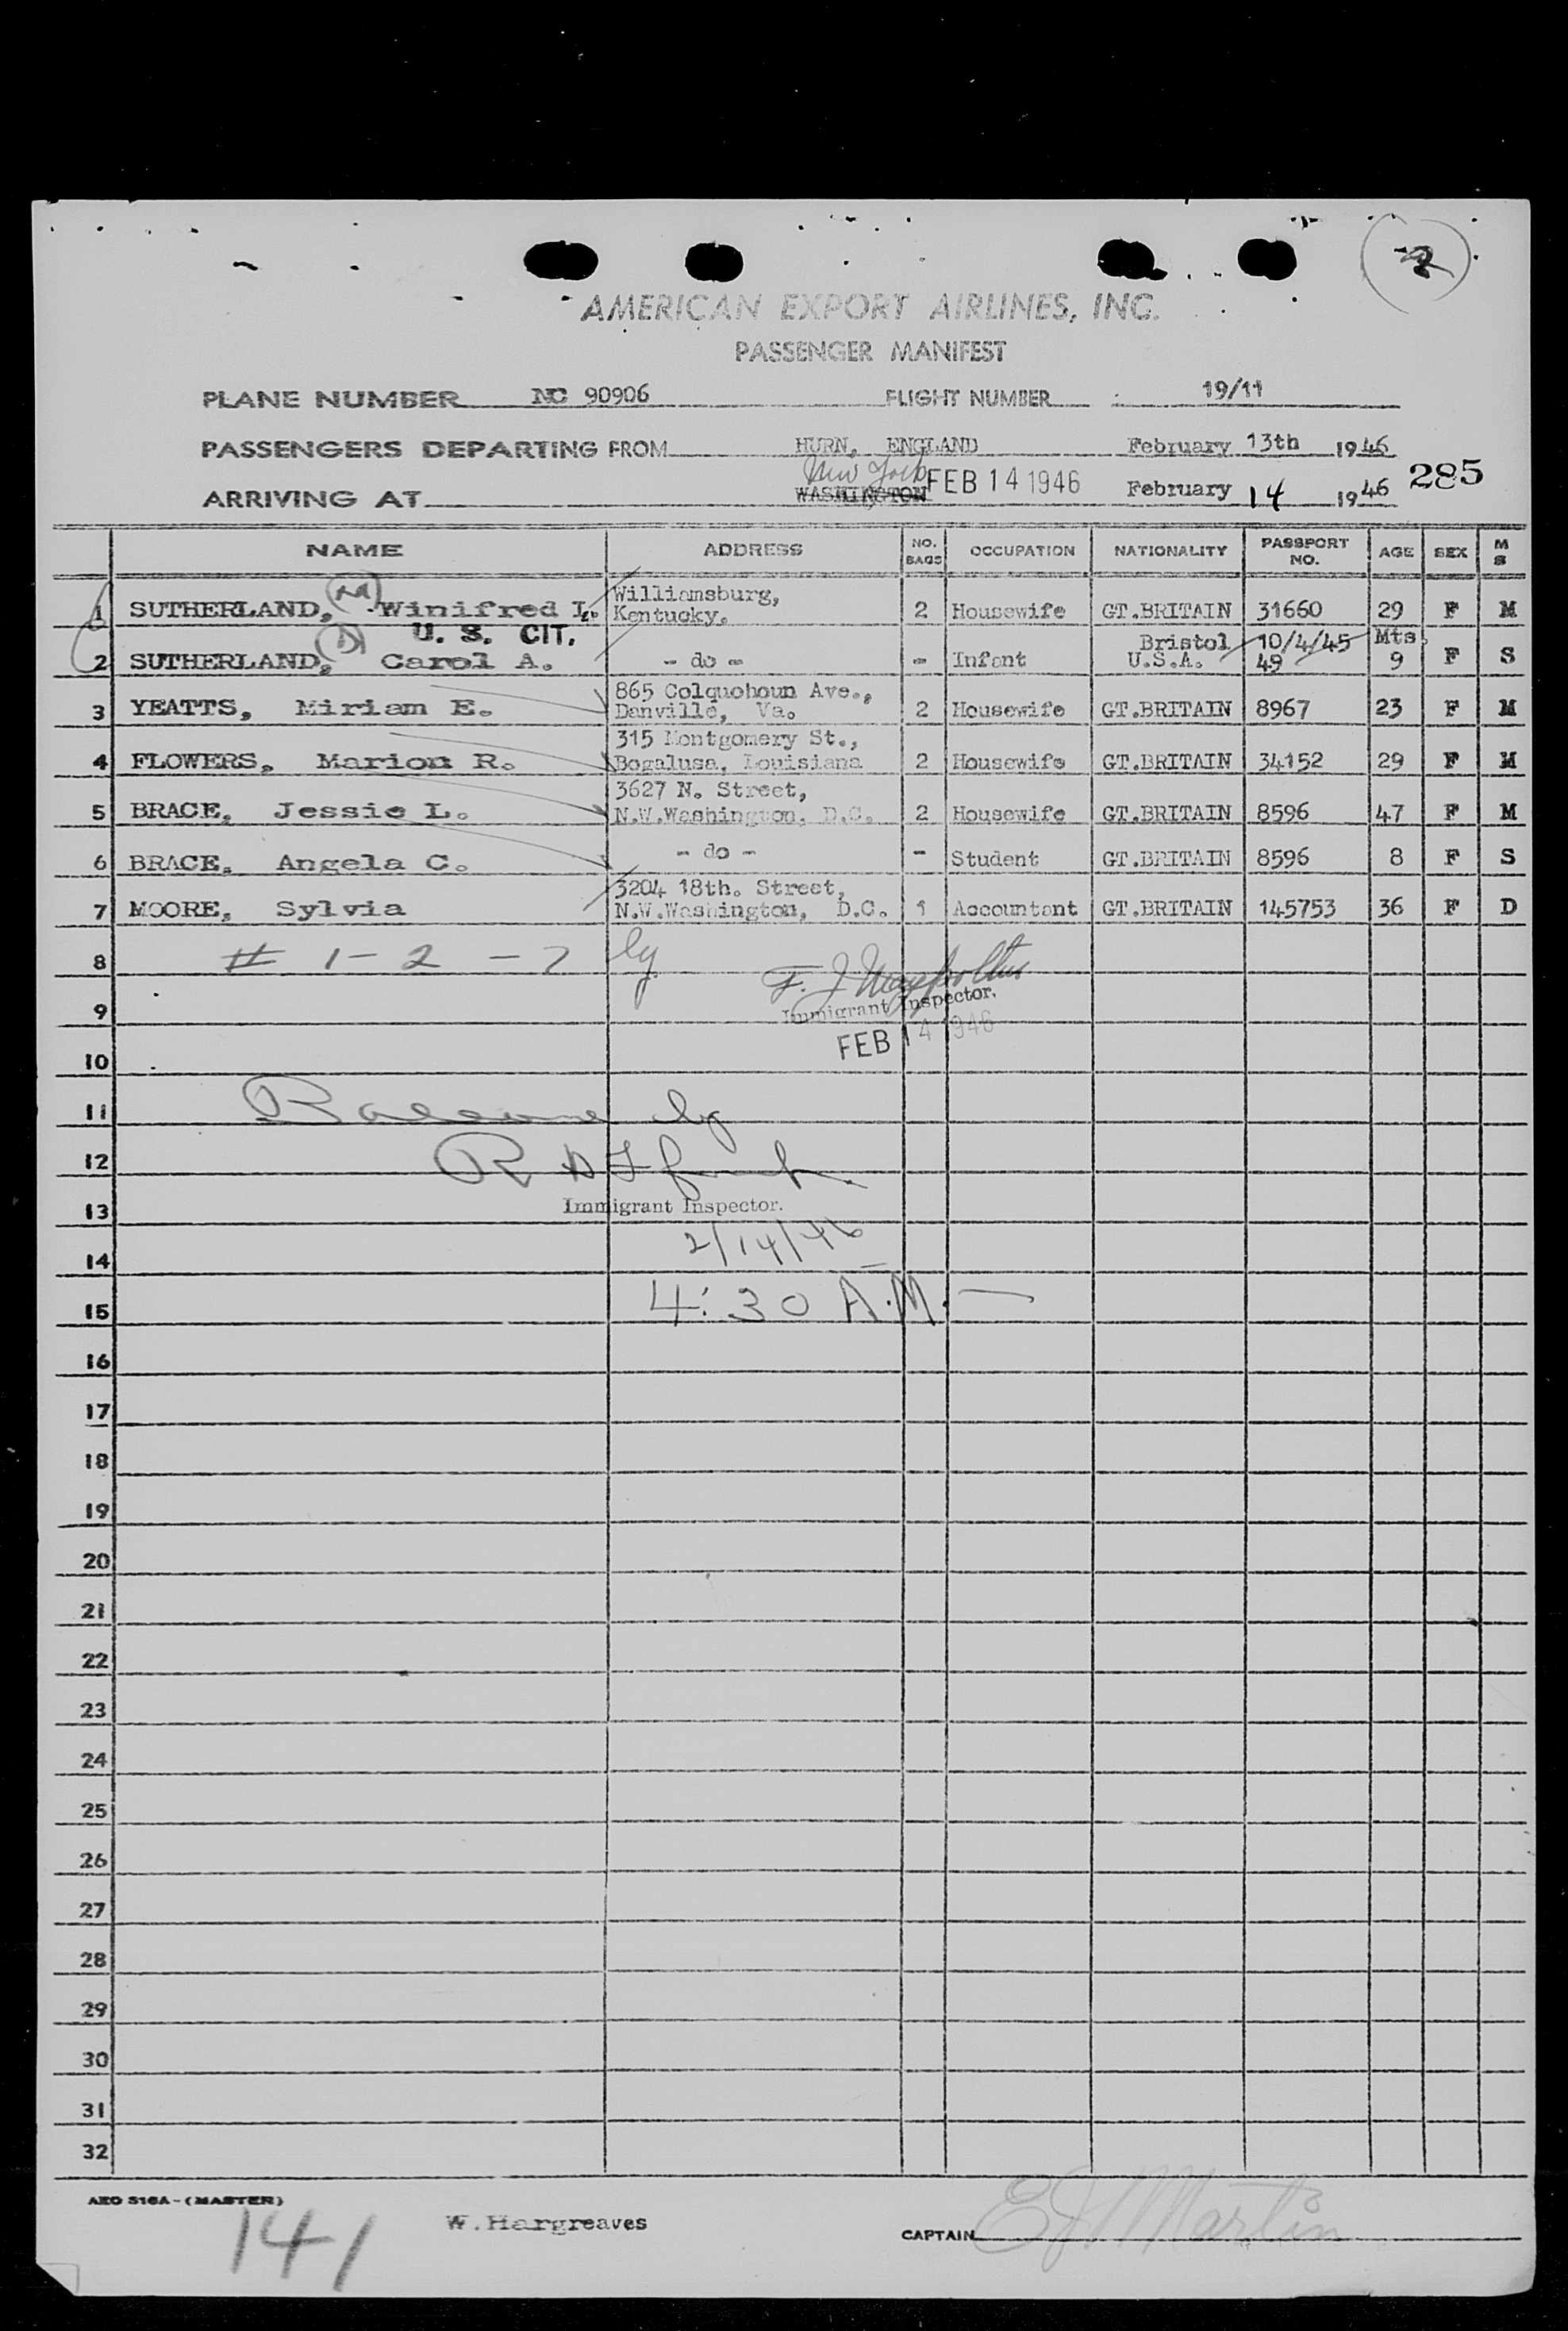 2
AMERICAN EXPORT AIRLINES, INC.
PASSENGER MANIFEST
PLANE NUMBER NC 90906 FLIGHT NUMBER 19/11
PASSENGERS DEPARTING FROM HURN, ENGLAND February 13th 1946
ARRIVING AT New York WASHINGTON FEB 14 1946 February 14 1946 285
NAME ADDRESS NO. BAGS OCCUPATION NATIONALITY PASSPORT NO. AGE SEX M S
Williamsburg,
1 SUTHERLAND, (M) Winifred L. Kentucky. 2 Housewife GT.BRITAIN 31660 29 F M
U. S. CIT. Bristol 10/4/45 Mts.
2 SUTHERLAND, (D) Carol A. - do - - Infant U.S.A. 49 9 F S
865 Colquohoun Ave.,
3 YEATTS, Miriam E. Danville, Va. 2 Housewife GT.BRITAIN 8967 23 F M
315 Montgomery St.,
4 FLOWERS, Marion R. Bogalusa, Louisiana 2 Housewife GT.BRITAIN 34152 29 F M
3627 N. Street,
5 BRACE, Jessie L. N.W.Washington, D.C. 2 Housewife GT.BRITAIN 8596 47 F M
6 BRACE, Angela C. - do - - Student GT.BRITAIN 8596 8 F S
3204 18th. Street,
7 MOORE, Sylvia N.W.Washington, D.C. 1 Accountant GT.BRITAIN 145753 36 F D
8 # 1 - 2 - 7 by
F. J.
Immigrant Inspector.
9
FEB 14 1946
10
11 by
12
13 Immigrant Inspector.
2/14/46
14
15 4:30 A.M.
16
17
18
19
20
21
22
23
24
25
26
27
28
29
30
31
32
AEO 516A-(MASTER)
141 W.Hargreaves CAPTAIN E J Martin